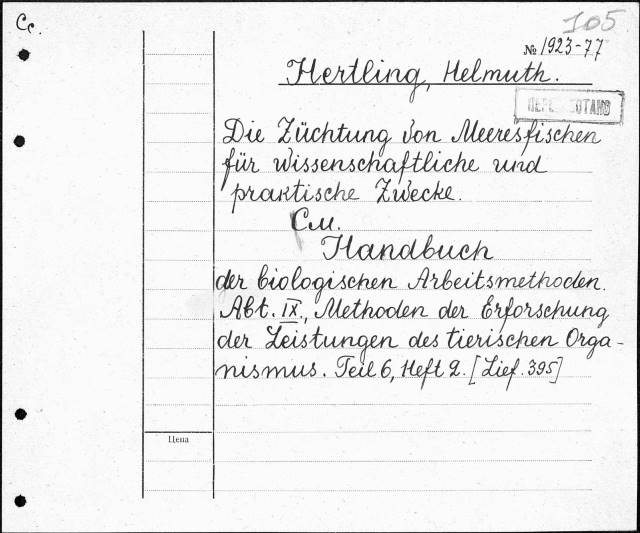 Сс.
105
№ 1923-77
Hertling, Helmuth.
Die Züchtung von Meeresfischen
für wissenschaftliche und
praktische Zwecke.
См.
Handbuch
der biologischen Arbeitsmethoden.
Abt. IX., Methoden der Erforschung
der Leistungen des tierischen Orga-
nismus. Teil 6, Heft 2. [Lief. 395]
Цена